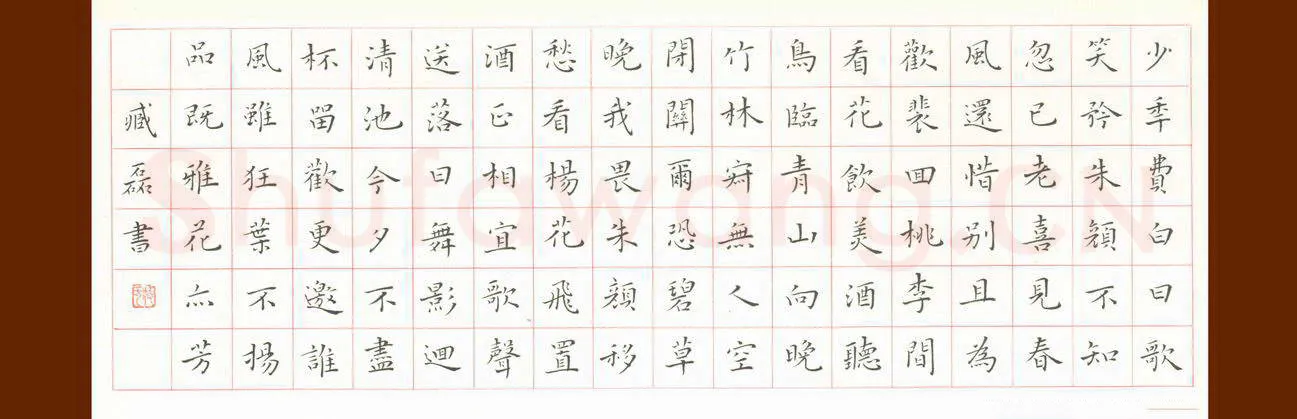 少秊費白日歌
笑矜朱顏不知
忽已老喜見春
風還惜別且為
歡裴回桃李間
看花飲美酒聽
鳥臨青山向晚
竹林寂無人空
閉關爾恐碧草
晚我畏朱顏移
愁看楊花飛置
酒正相宜歌聲
送落日舞影迴
清池今夕不盡
杯留歡更邀誰
風雖狂葉不揚
品既雅花亦芳
臧磊書
Shufawang.CN